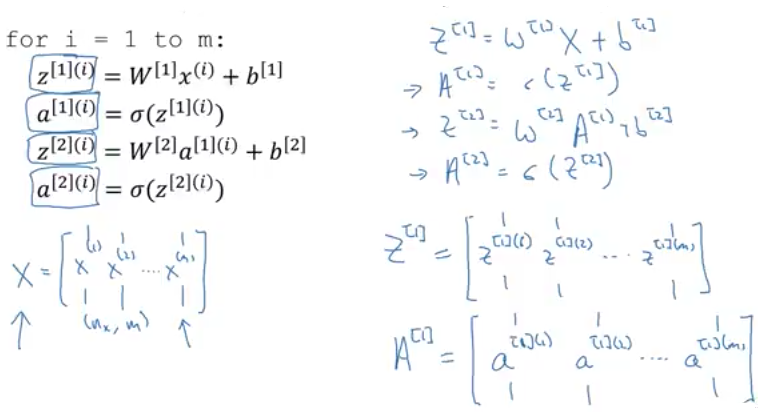 for i = 1 to m:
z[1](i) = W[1]x(i) + b[1]
a[1](i) = σ(z[1](i))
z[2](i) = W[2]a[1](i) + b[2]
a[2](i) = σ(z[2](i))
X = [x(1) x(2) ... x(m)]
(nx, m)
Z[1] = W[1] X + b[1]
→ A[1] = σ(Z[1])
→ Z[2] = W[2] A[1] + b[2]
→ A[2] = σ(Z[2])
Z[1] = [z[1](1) z[1](2) ... z[1](m)]
A[1] = [a[1](1) a[1](2) .... a[1](m)]